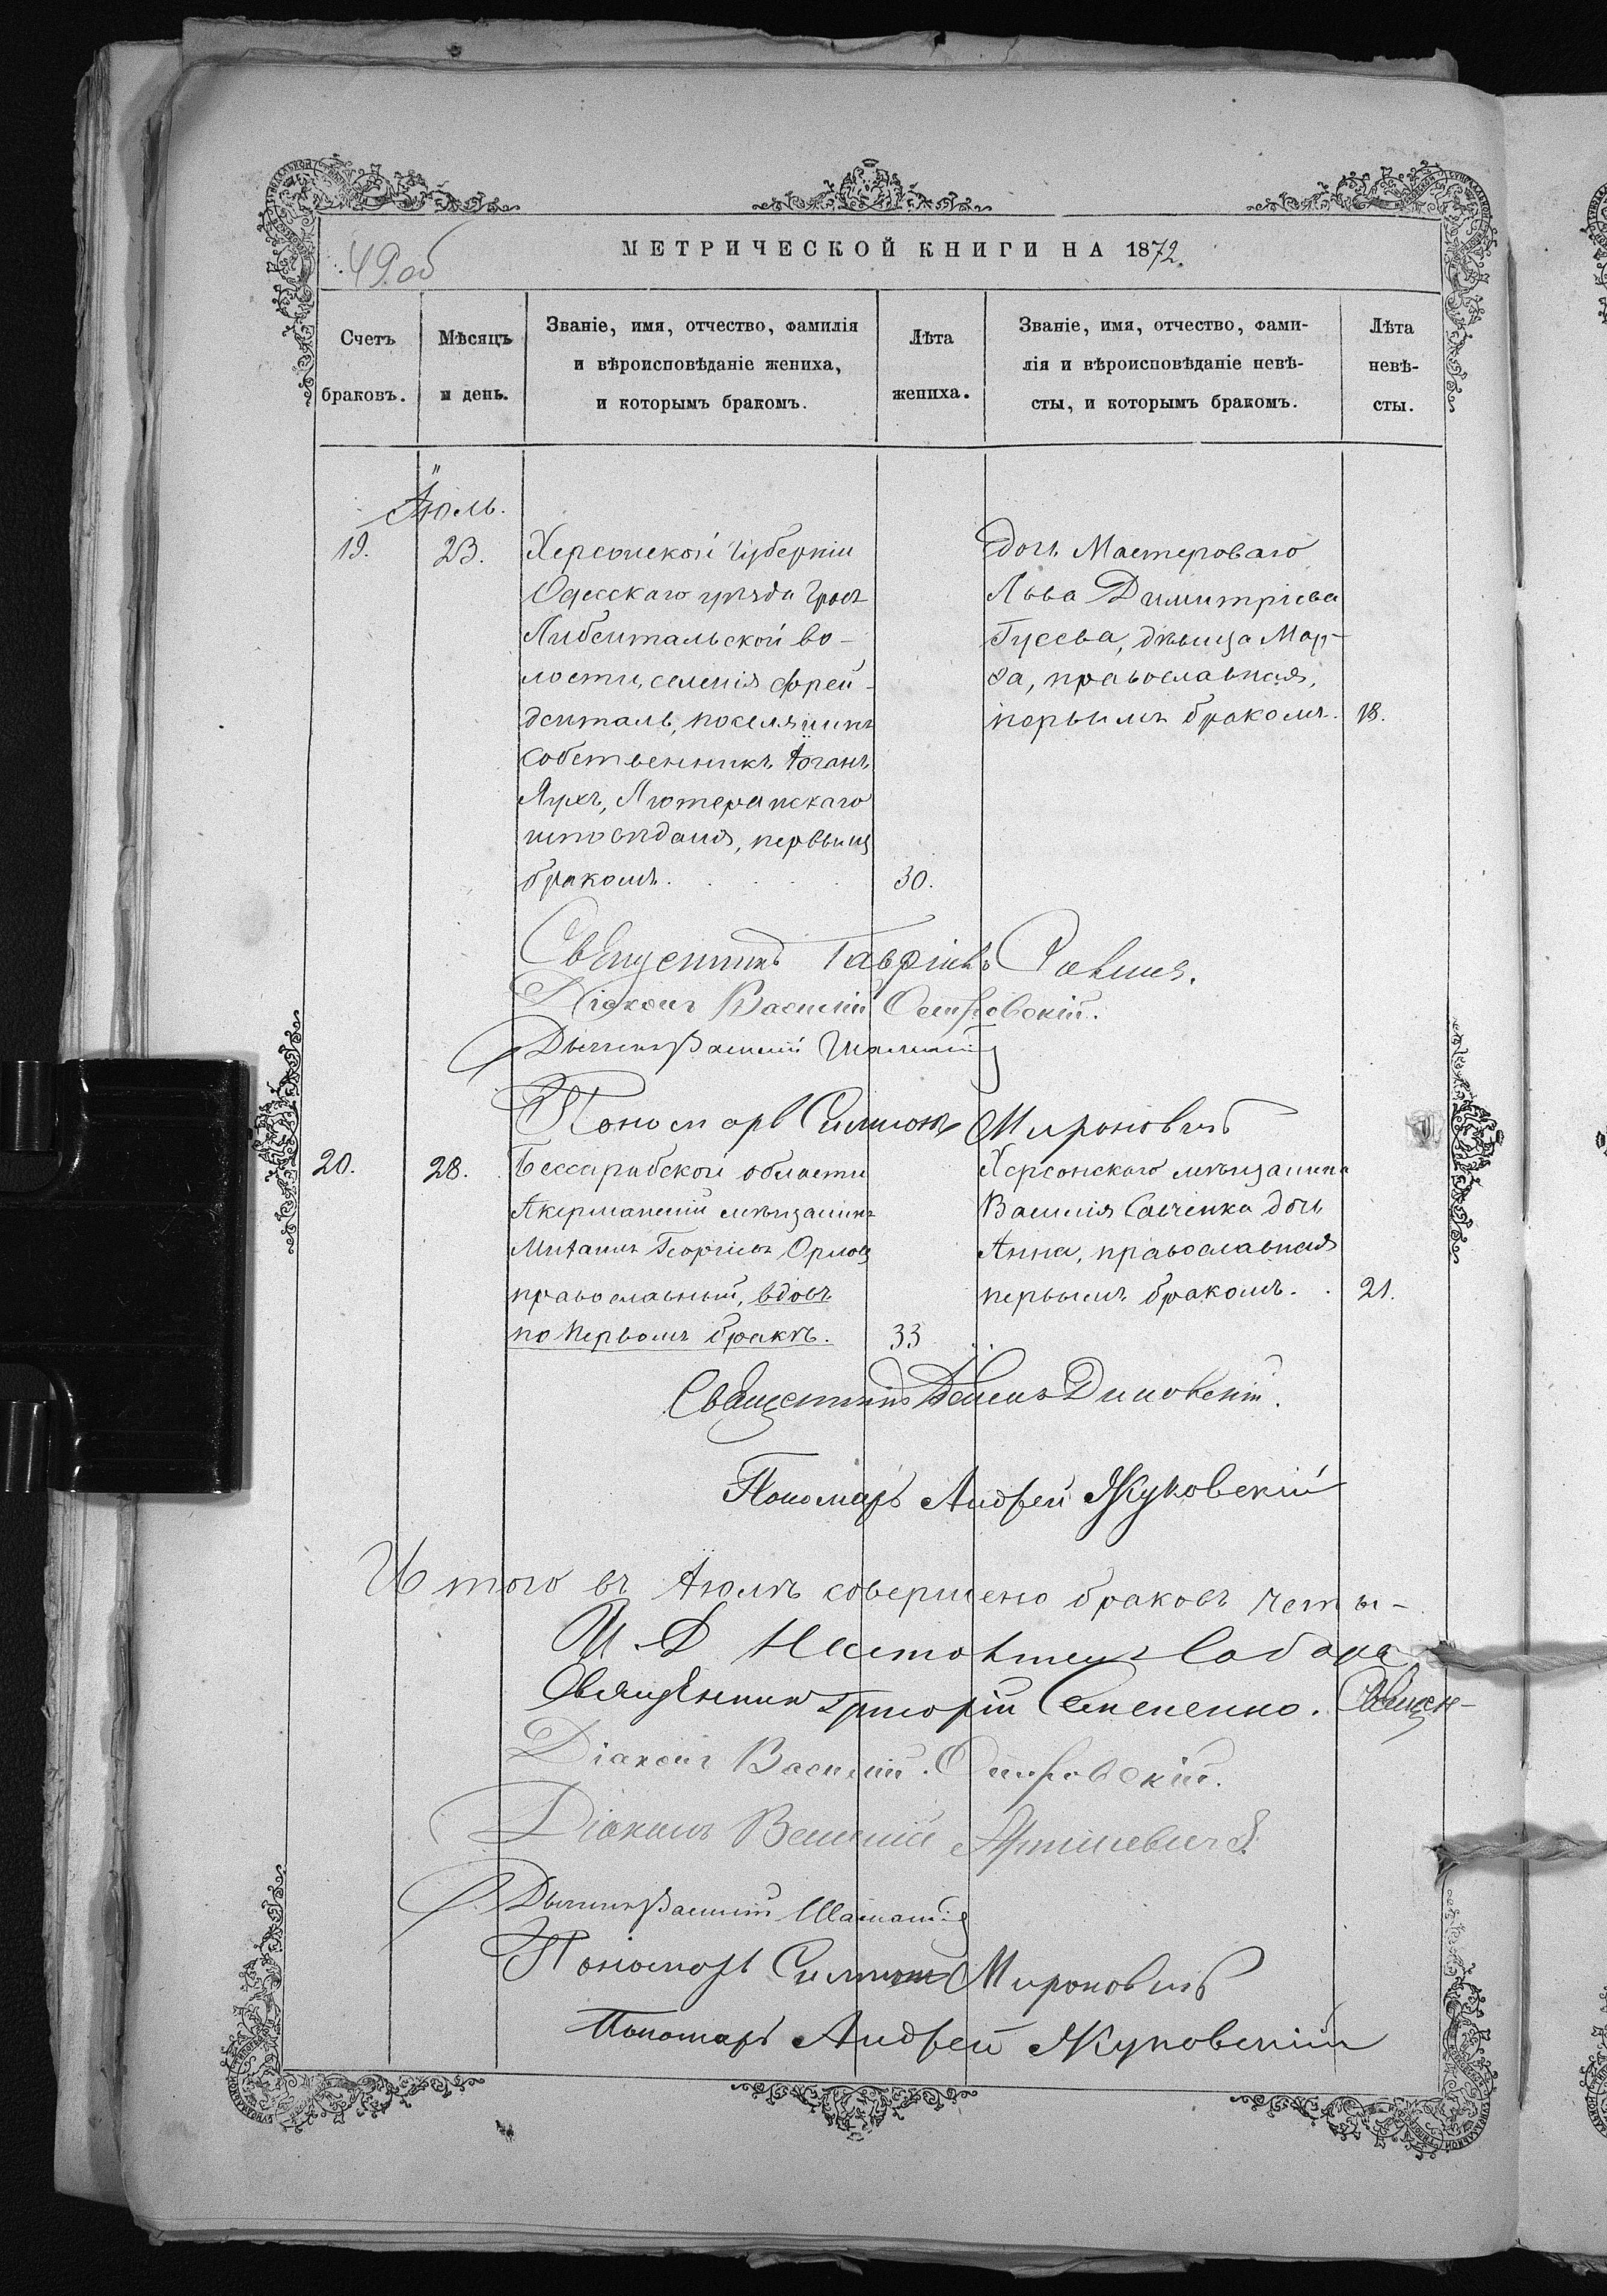 49.об
МЕТРИЧЕСКОЙ КНИГИ НА 1872.
Счетъ
браковъ.
Мѣсяцъ
и день.
Званіе, имя, отчество, фамилія
и вѣроисповѣданіе жениха,
и которымъ бракомъ.
Лѣта
жениха.
Званіе, имя, отчество, фами-
лія и вѣроисповѣданіе невѣ-
сты, и которымъ бракомъ.
Лѣта
невѣ-
сты.
Іюль.
19.
23.
Херсонской губерніи
Одесскаго уѣзда Грос
Либентальской во-
лости, селенія Фрей-
денталь, поселянинъ
собственникъ Іоганъ
Лухъ, Лютеранскаго
исповѣданія, первымъ
бракомъ.
30.
Дочь Мастероваго
Льва Димитріева
Гусева, дѣвица Мар-
ѳа, православная,
первымъ бракомъ.
18.
Священникъ Гавріилъ
Діаконъ Василій Островскій.
Дьячекъ Василій
Пономарь Симеонъ Мироновичъ
20.
28.
Бессарабской области
Акерманскій мѣщанинъ
Георгіевъ Орловъ
православный, вдовъ
по первомъ бракѣ.
33
Херсонскаго мѣщанина
Василія Савченка дочь
Анна, православная
первымъ бракомъ.
21.
Священникъ Диковскій.
Пономарь Андрей Жуковскій
Итого въ Іюлѣ совершено браковъ четы-
И. Д. Настоятеля Собора
Священникъ Григорій Семененко. Священ-
Діаконъ Василій Островскій.
Діаконъ Василій
Дьячекъ Василій
Пономарь Симеонъ Мироновичъ
Пономарь Андрей Жуковскій